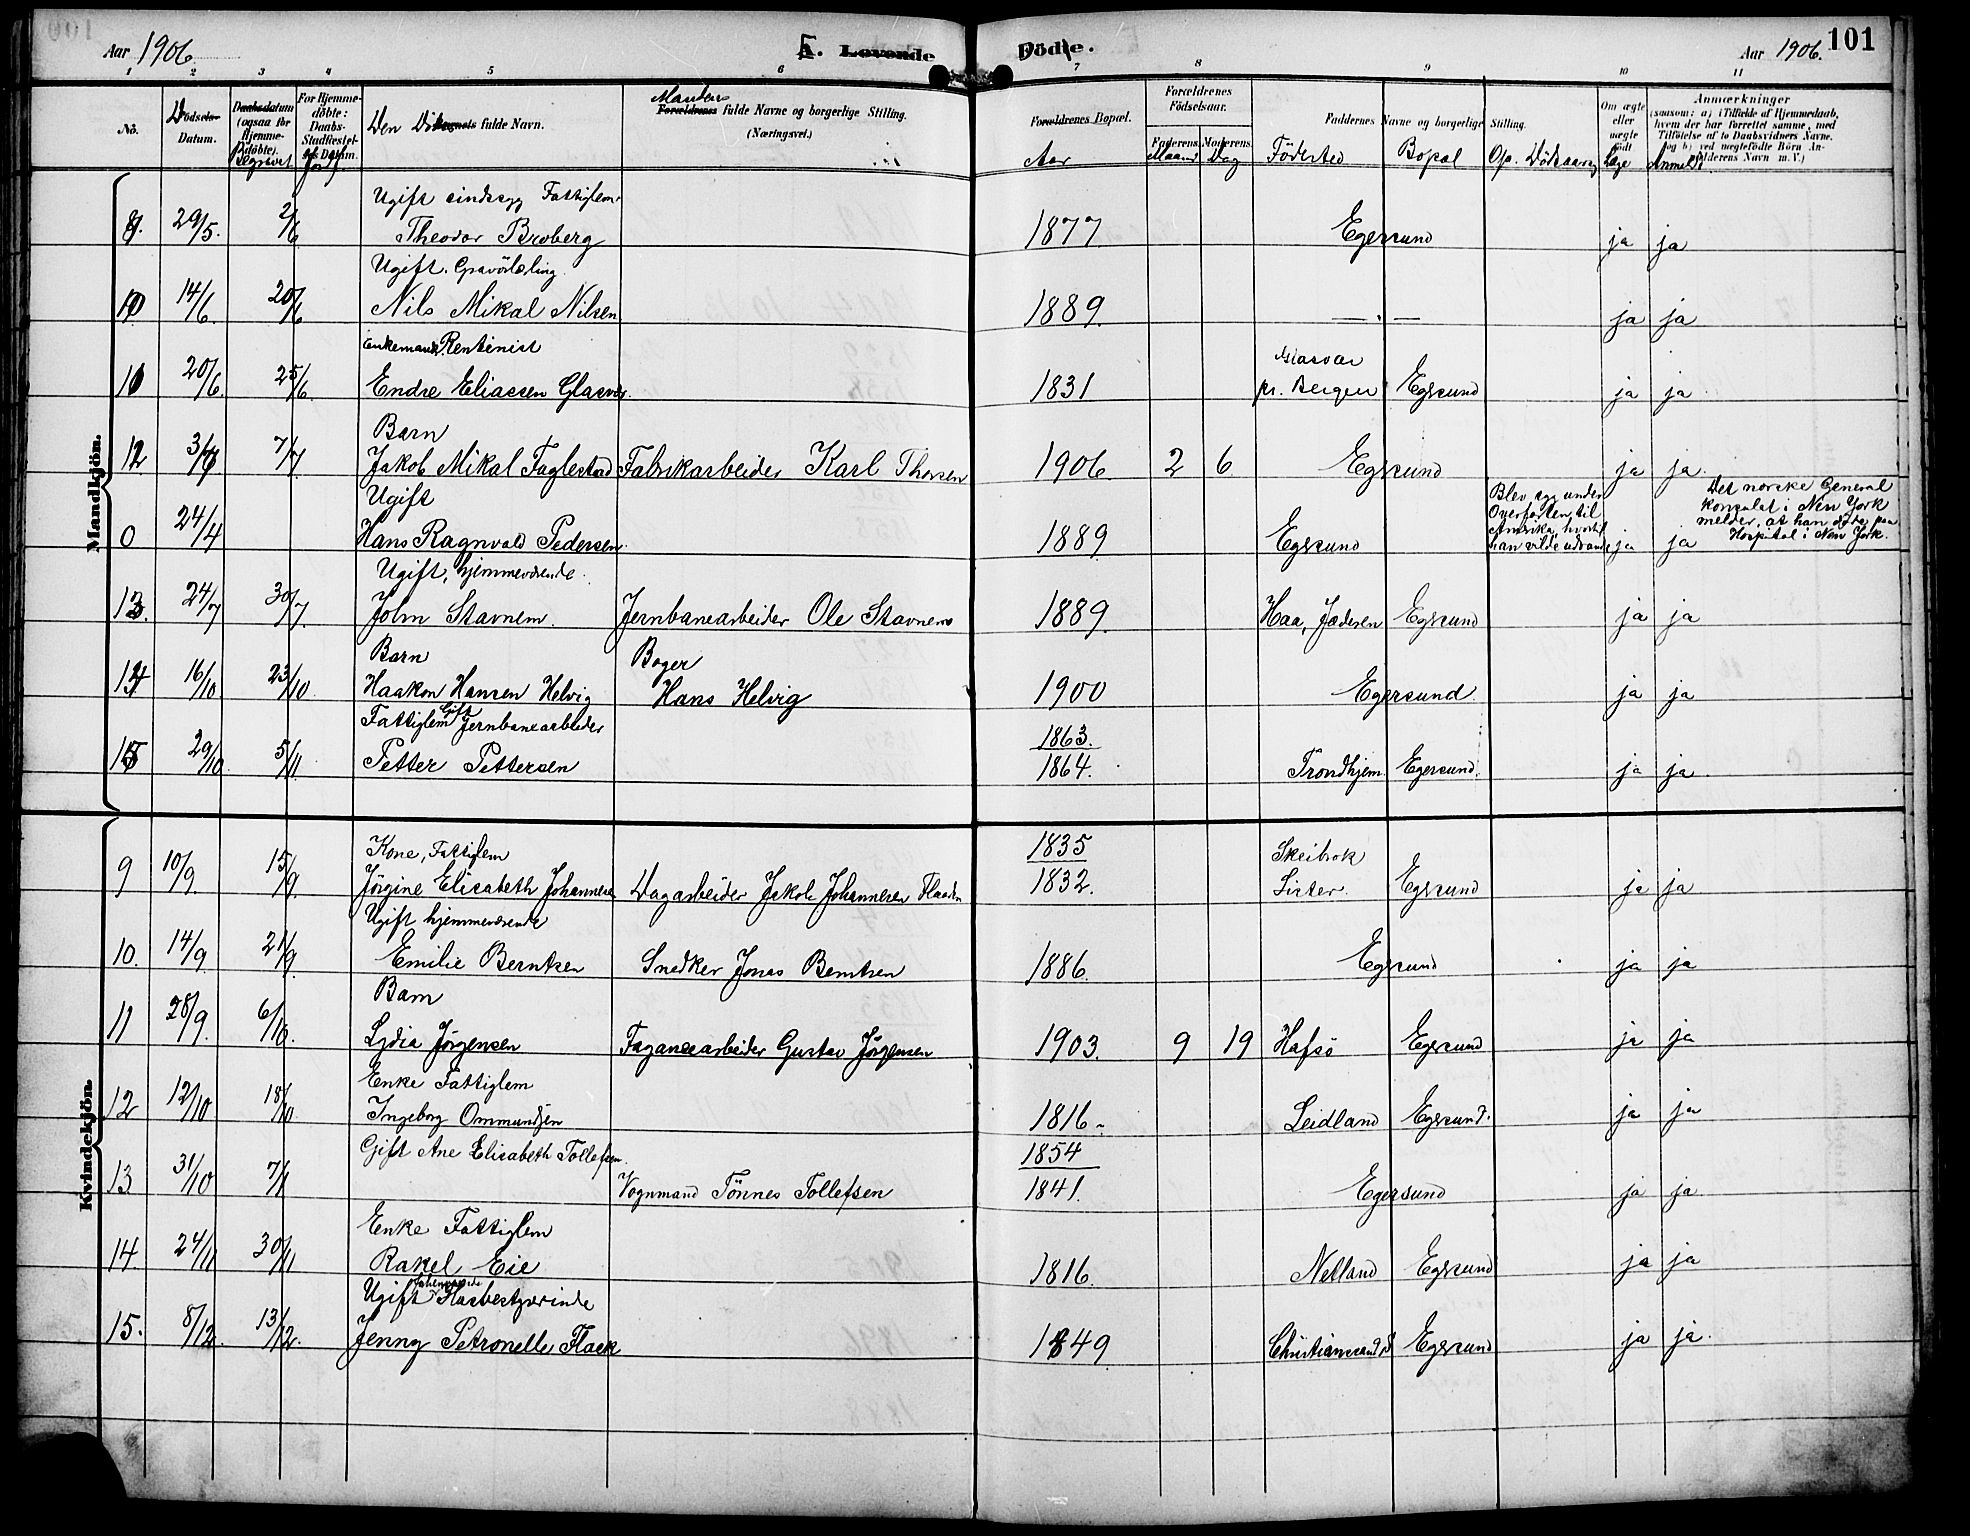 Aar 1906.
F. Levende Döde.
Aar 1906. 101
1 2 3 4 5 6 7 8 9 10 11
No. Dödsdatum. Daabsdatum (ogsaa for Hjemmedöbte). Begravet For Hjemmedöbte: Daabs-Stadfæstelses Datum. Jordf. Den Dödes fulde Navn. Mandens fulde Navne og borgerlige Stilling. (Næringsvei.) Forældrenes Bopæl. Aar Forældrenes Födselsaar. Faderens. Maaned Moderens. Dag Faddernes Navne og borgerlige Stilling. Födested Bopæl Op. Dödsaarsag Om ægte eller uægte födt Læge Anmærkninger (saasom: a) i Tilfælde af Hjemmedaab, hvem der har forrettet samme, med Tilföielse af to Daabsvidners Navne. og b) ved uægtefödte Börn Anmeldt
Mandkjön.
Ugift sindssyg Fattiglem
9. 29/5. 2/6 Theodor Broberg 1877 Egersund ja ja
Ugift. Gravörlærling
10 14/6. 20/6 Nils Mikal Nilsen 1889. — . — ja ja
Enkemand. Rentenist Glasvær
11 20/6. 25/6. Endre Eliassen Glasvær. 1831 pr. Bergen Egersund ja ja
Barn
12 3/7 7/7. Jakob Mikal Faglestad Fabrikarbeider Karl Thorsen 1906 2 6 Egersund ja ja.
Ugift
0 24/4 Hans Ragnvald Pedersen. 1889 Egersund ja ja
Blev syg under Overfarten til Amerika, hvortil han vilde udvandre
Det norske General konsulat i New York melder, at han döde paa Hospital i New York.
Ugift, hjemmeværende.
13. 24/7 30/7. John Stavnem. Jernbanearbeider Ole Stavnem 1889. Haa, Jæderen Egersund ja ja
Barn Bager
14 16/10 23/10. Haakon Hansen Helvig Hans Helvig 1900 Egersund. ja ja
Fattiglem Gift Jernbanearbeider 1863.
15 29/10. 5/11. Petter Pettersen 1864. Trondhjem. Egersund. ja ja.
Kvindekjön.
Kone, Fattiglem 1835 Skeibrok
9 10/9. 15/9. Jörgine Elisabeth Johannesen Dagarbeider Jakob Johannesen 1832. Lister. Egersund ja ja
Ugift hjemmeværende
10. 14/9 21/9 Emilie Berntsen Snedker Jonas Berntsen 1886. Egersund ja ja
Barn
11 28/9. 6/10. Lydia Jörgensen Fayancearbeider Gustav Jörgensen 1903. 9 19 Hafsö Egersund ja ja
Enke Fattiglem
12 12/10 18/10. Ingeborg Ommundsen 1816 Leidland Egersund. ja ja
Gift Ane Elisabeth Tollefsen. 1854
13 31/10 7/11 Vognmand Tönnes Tollefsen 1841. Egersund ja ja.
Enke Fattiglem
14. 24/11 30/11 Rakel Eie 1816. Netland Egersund ja ja
Ugift Husbestyrerinde
15. 8/12. 13/12. Jenny Petronelle Flack 1849 Christianssand S Egersund ja ja.